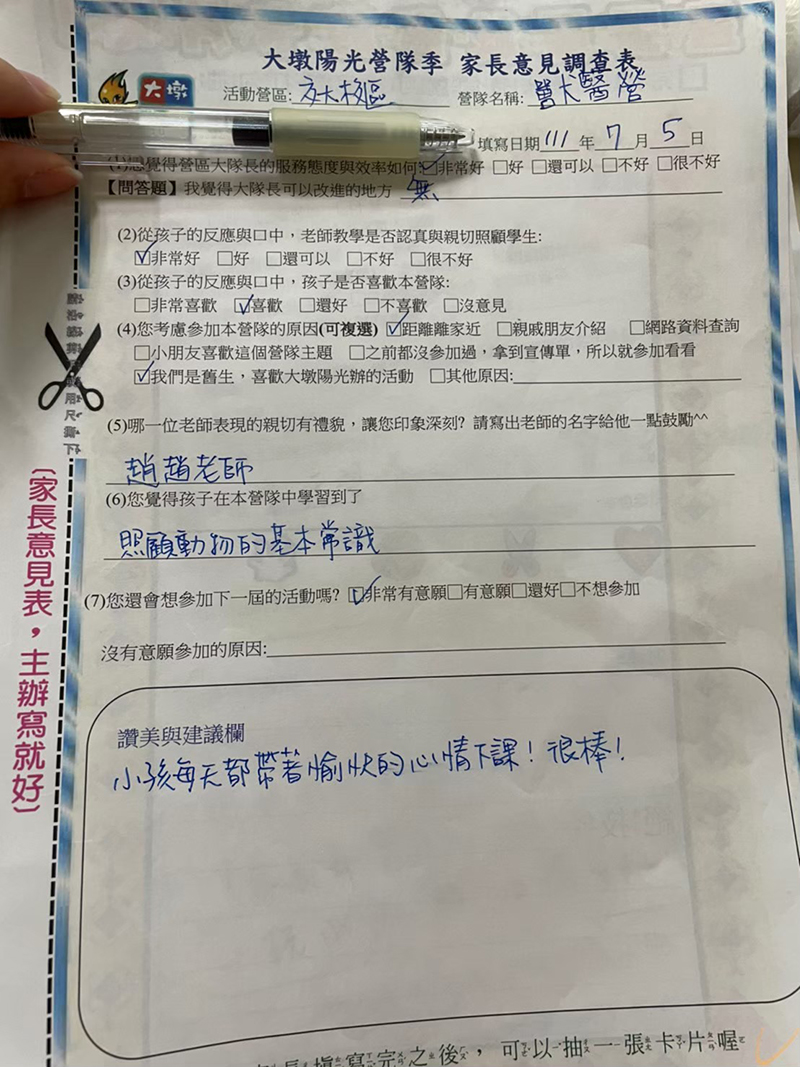 大墩陽光營隊季 家長意見調查表
大墩
活動營區: 營隊名稱: 獸醫營
填寫日期 111 年 7 月 5 日
(1)您覺得營區大隊長的服務態度與效率如何?☑非常好 □好 □還可以 □不好 □很不好
【問答題】我覺得大隊長可以改進的地方 無
(2)從孩子的反應與口中，老師教學是否認真與親切照顧學生:
☑非常好 □好 □還可以 □不好 □很不好
(3)從孩子的反應與口中，孩子是否喜歡本營隊:
□非常喜歡 ☑喜歡 □還好 □不喜歡 □沒意見
(4)您考慮參加本營隊的原因(可複選) ☑距離離家近 □親戚朋友介紹 □網路資料查詢
□小朋友喜歡這個營隊主題 □之前都沒參加過，拿到宣傳單，所以就參加看看
☑我們是舊生，喜歡大墩陽光辦的活動 □其他原因:
(5)哪一位老師表現的親切有禮貌，讓您印象深刻? 請寫出老師的名字給他一點鼓勵^^
趙趙老師
(6)您覺得孩子在本營隊中學習到了
照顧動物的基本常識
(7)您還會想參加下一屆的活動嗎? ☑非常有意願□有意願□還好□不想參加
沒有意願參加的原因:
讚美與建議欄
小孩每天都帶著愉快的心情下課！很棒！
〔家長意見表，主辦寫就好〕
長填寫完之後，可以抽一張卡片喔